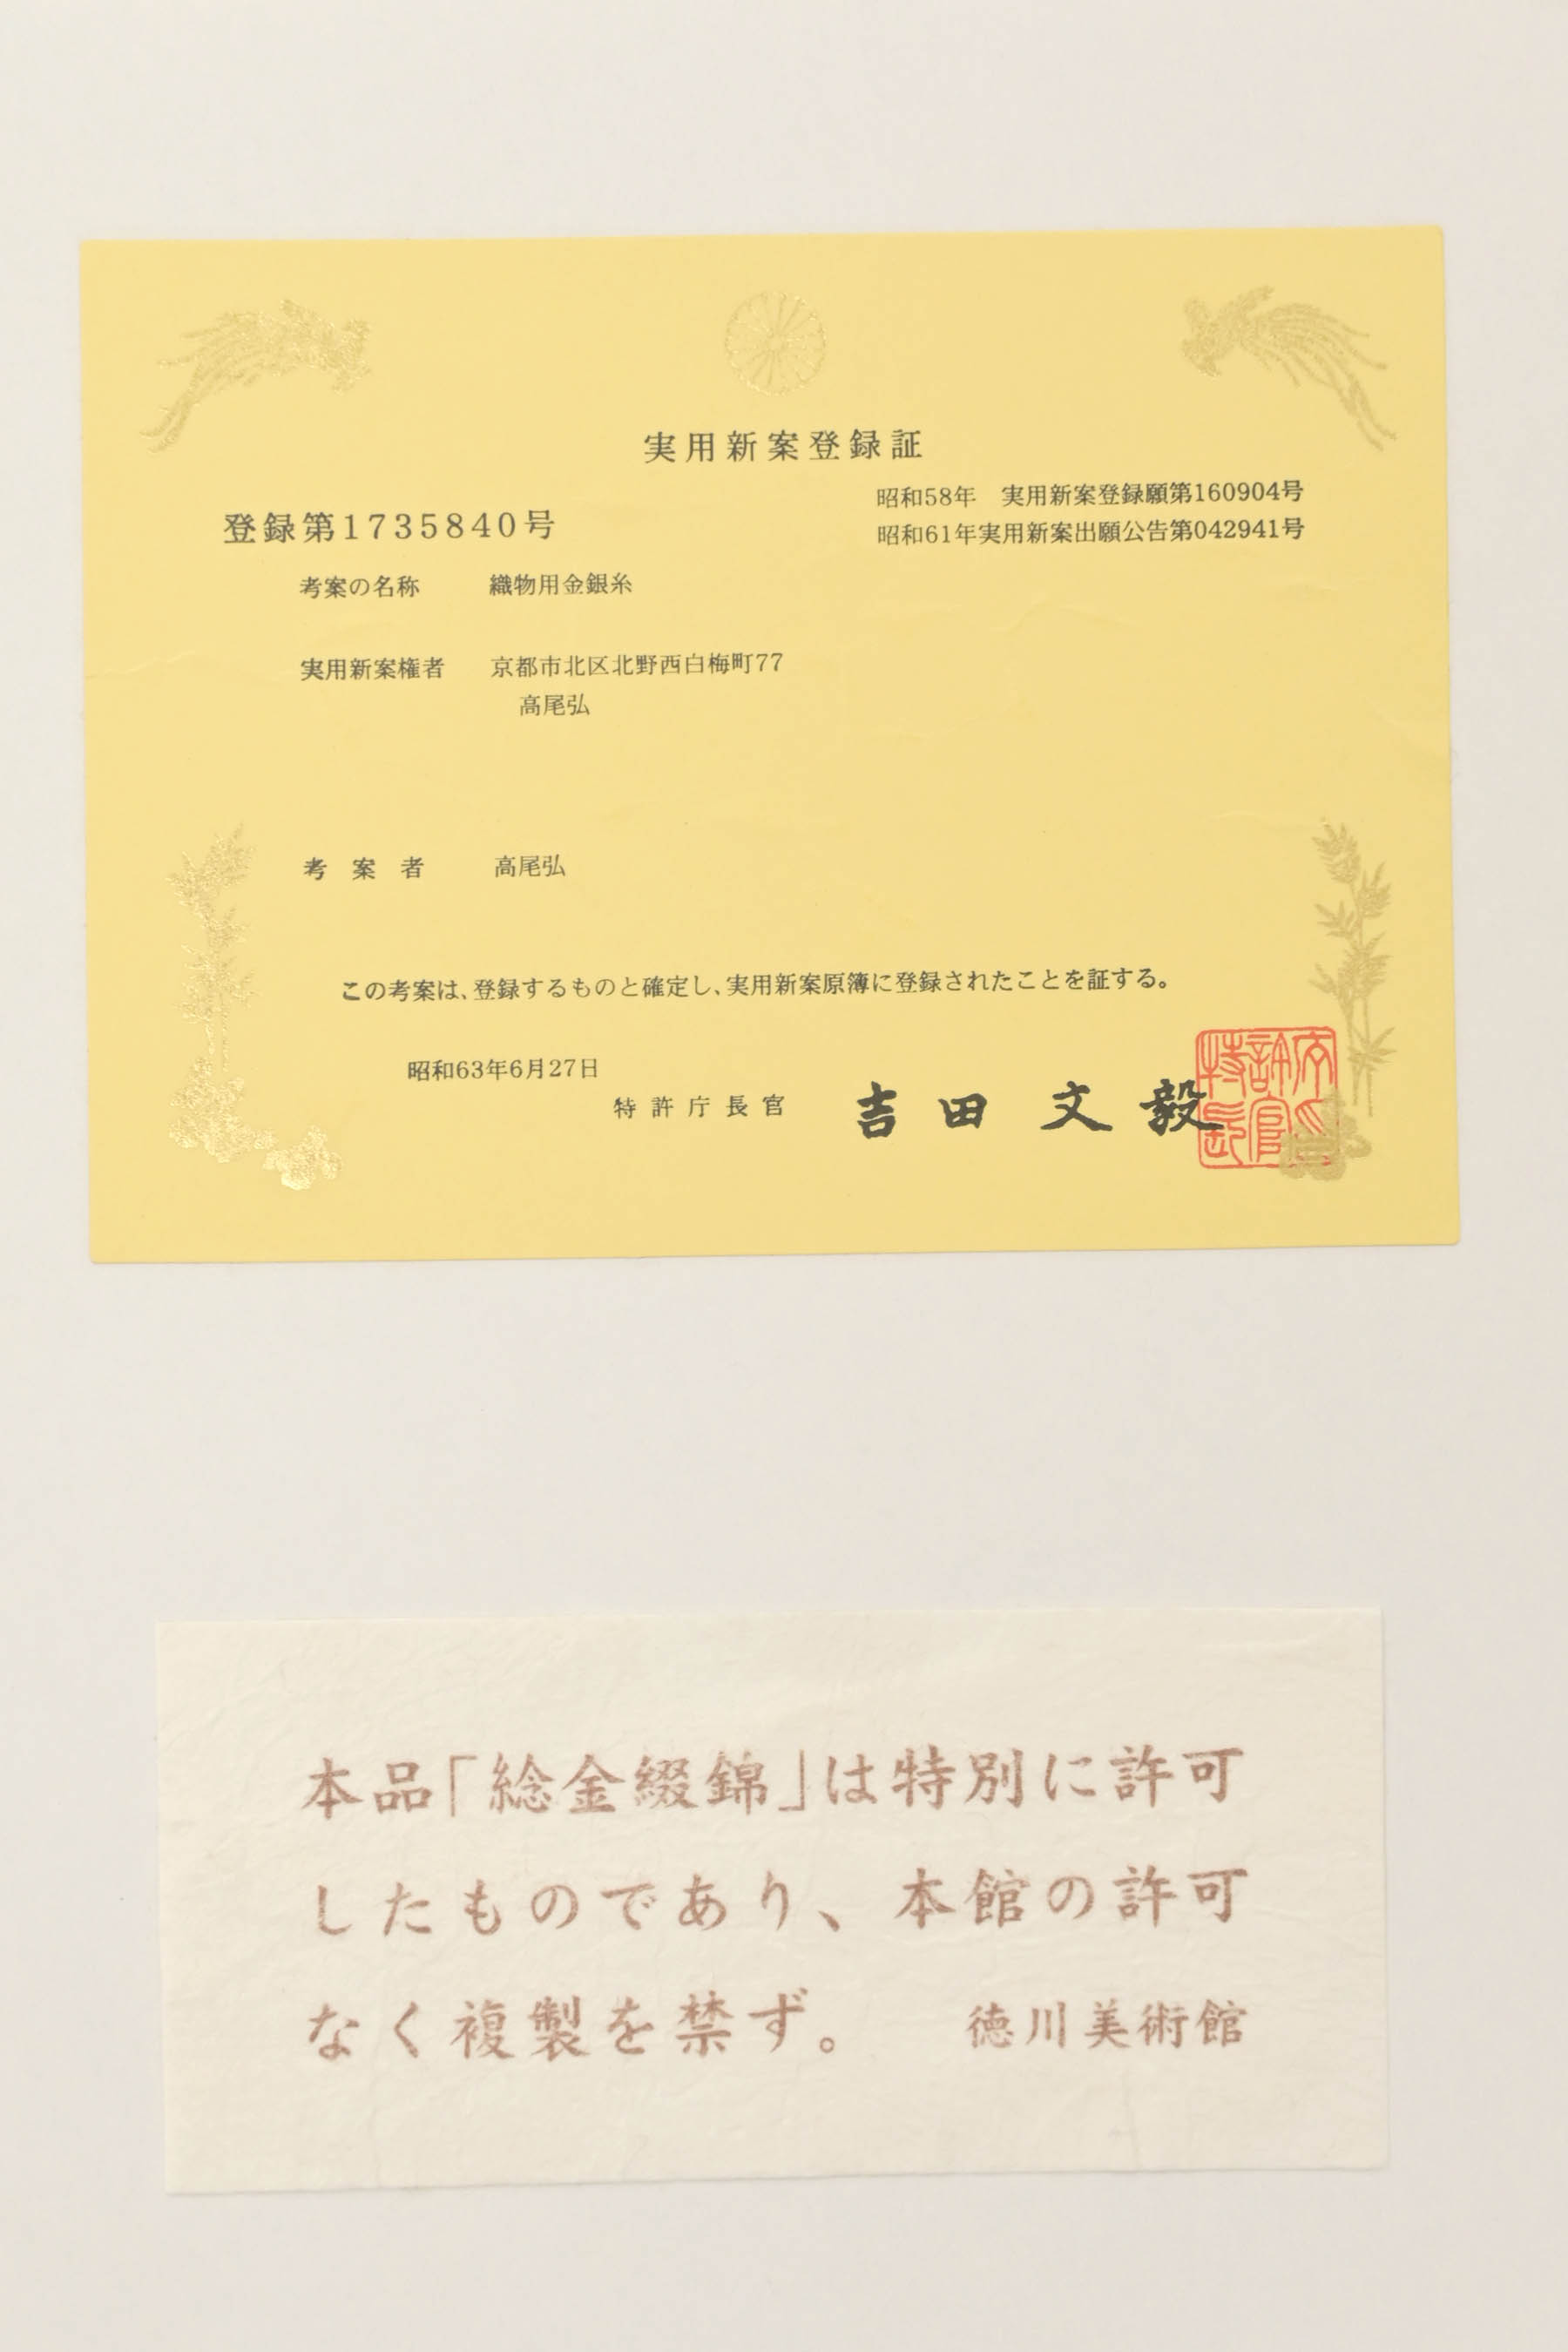 実用新案登録証
昭和58年　実用新案登録願第160904号
登録第1735840号
昭和61年実用新案出願公告第042941号
考案の名称　織物用金銀糸
実用新案権者　京都市北区北野西白梅町77
高尾弘
考案者　高尾弘
この考案は、登録するものと確定し、実用新案原簿に登録されたことを証する。
昭和63年6月27日
特許庁長官　吉田文毅
特許庁長官
本品「総金綴錦」は特別に許可
したものであり、本館の許可
なく複製を禁ず。　徳川美術館